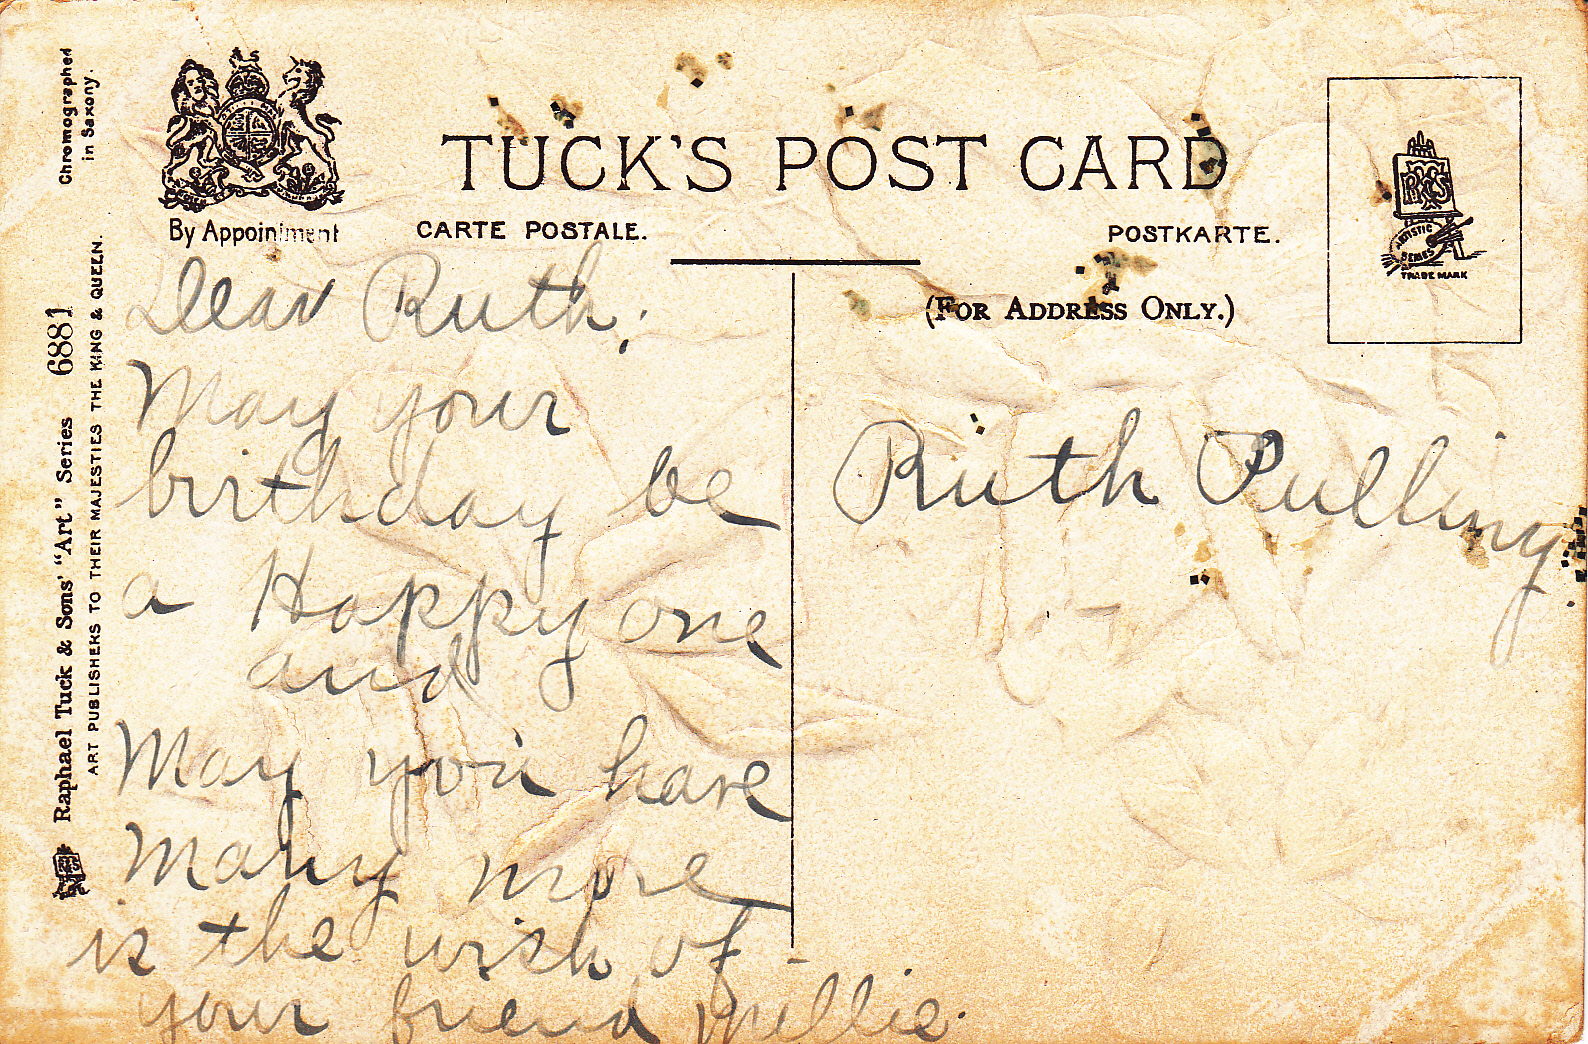 Chromographed
in Saxony.
By Appointment
TUCK'S POST CARD
CARTE POSTALE.
POSTKARTE.
(FOR ADDRESS ONLY.)
ARTISTIC
SERIES
TRADE MARK
Raphael Tuck & Sons' "Art" Series 6881
ART PUBLISHERS TO THEIR MAJESTIES THE KING & QUEEN.
Dear Ruth;
May your
birthday be
a Happy one
and
May you have
Many more
is the wish of
your friend Millie.
Ruth Pulling